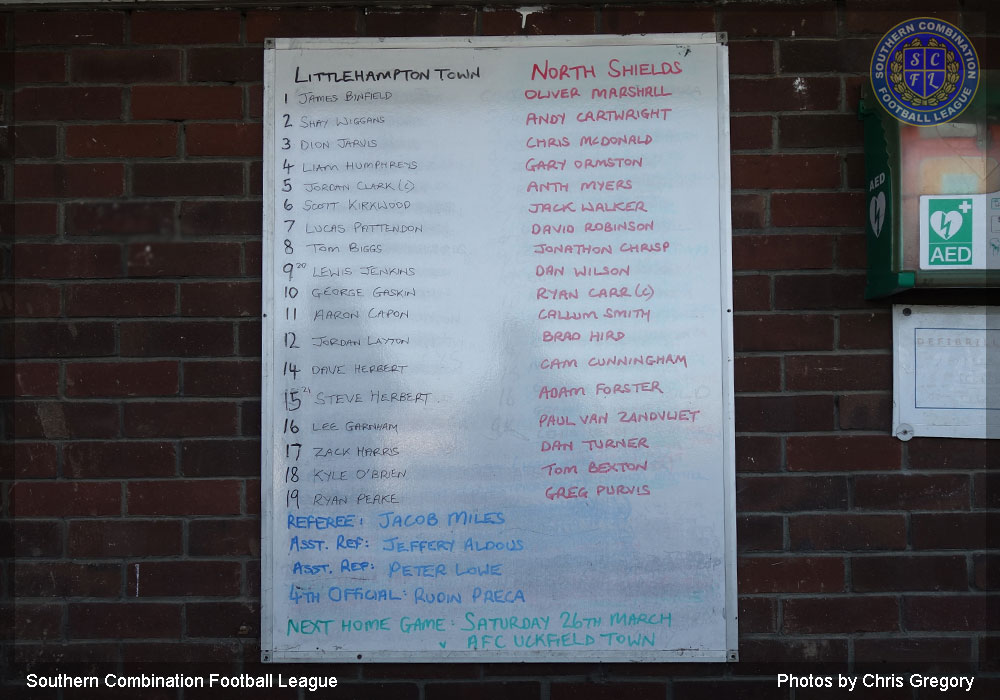 LITTLEHAMPTON TOWN NORTH SHIELDS
1 JAMES BINFIELD OLIVER MARSHALL
2 SHAY WIGGANS ANDY CARTWRIGHT
3 DION JARVIS CHRIS McDONALD
4 LIAM HUMPHREYS GARY ORMSTON
5 JORDAN CLARK (C) ANTH MYERS
6 SCOTT KIRKWOOD JACK WALKER
7 LUCAS PATTENDON DAVID ROBINSON
8 TOM BIGGS JONATHON CHRISP
9 20 LEWIS JENKINS DAN WILSON
10 GEORGE GASKIN RYAN CARR (C)
11 AARON CAPON CALLUM SMITH
12 JORDAN LAYTON BRAD HIRD
14 DAVE HERBERT CAM CUNNINGHAM
15 21 STEVE HERBERT ADAM FORSTER
16 LEE GARNHAM PAUL VAN ZANDVLIET
17 ZACK HARRIS DAN TURNER
18 KYLE O'BRIEN TOM BEXTON
19 RYAN PEAKE GREG PURVIS
REFEREE: JACOB MILES
ASST. REF: JEFFERY ALDOUS
ASST. REF: PETER LOWE
4TH OFFICIAL: RUDIN PRECA
NEXT HOME GAME: SATURDAY 26TH MARCH
v AFC UCKFIELD TOWN
SOUTHERN COMBINATION
SCFL
FOOTBALL LEAGUE
AED
AED
DEFIBRILL
Southern Combination Football League
Photos by Chris Gregory